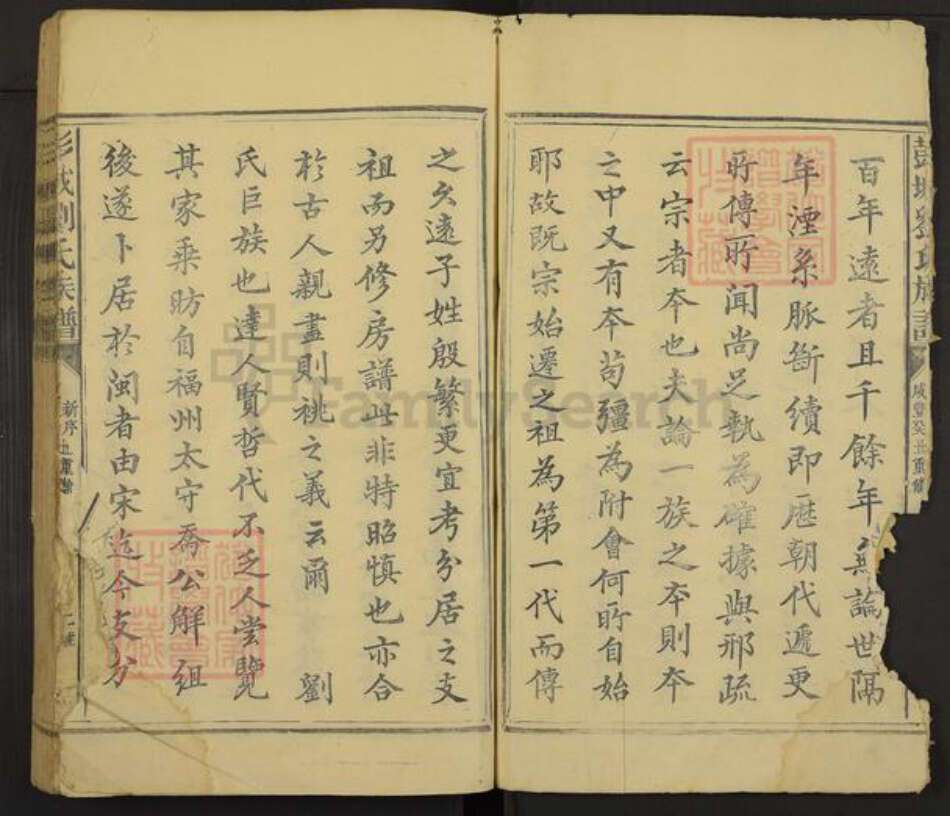 彭城劉氏族譜
咸豐癸丑重鐫
百年遠者且千餘年無論世隔
年湮系脉斷續即歷朝代遞更
所傳所聞尚足執為確據與邢疏
云宗者本也夫論一族之本則本
之中又有本苟彊為附會何所自始
耶故既宗始遷之祖為第一代而傳
之久遠子姓殷繁更宜考分居之支
祖而另修房譜此非特昭慎也亦合
於古人親盡則祧之義云爾 劉
氏巨族也達人賢哲代不乏人嘗覽
其家乘昉自福州太守喬公解組
後遂卜居於閩者由宋迄今支分
彭城劉氏族譜
新序
丑重鐫
FamilySearch